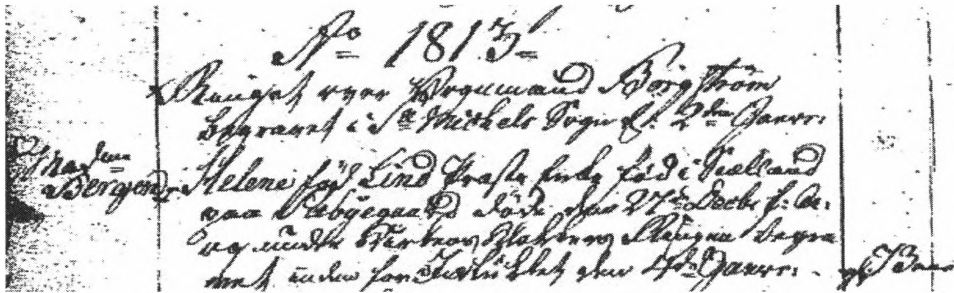 No 1813
Ringet over Vognmand Borgstrøm
begravet i St Mickels Sogn d. 2den Janvr:
Madme Bergen
Helene fød Lind Præste Enke fød i Siælland
paa Sæbyegaard døde den 27de Decbr f: A:
og under Kirkens Klokkers Ringen begra
vet inden for den 4de Janvr: